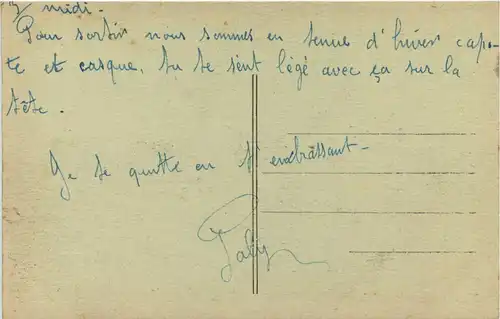 midi.
Pour sortir nous sommes en tenue d'hiver capo-
te et casque. tu te sent légé avec ça sur la
tête.
Je te quitte en t'embrassant-